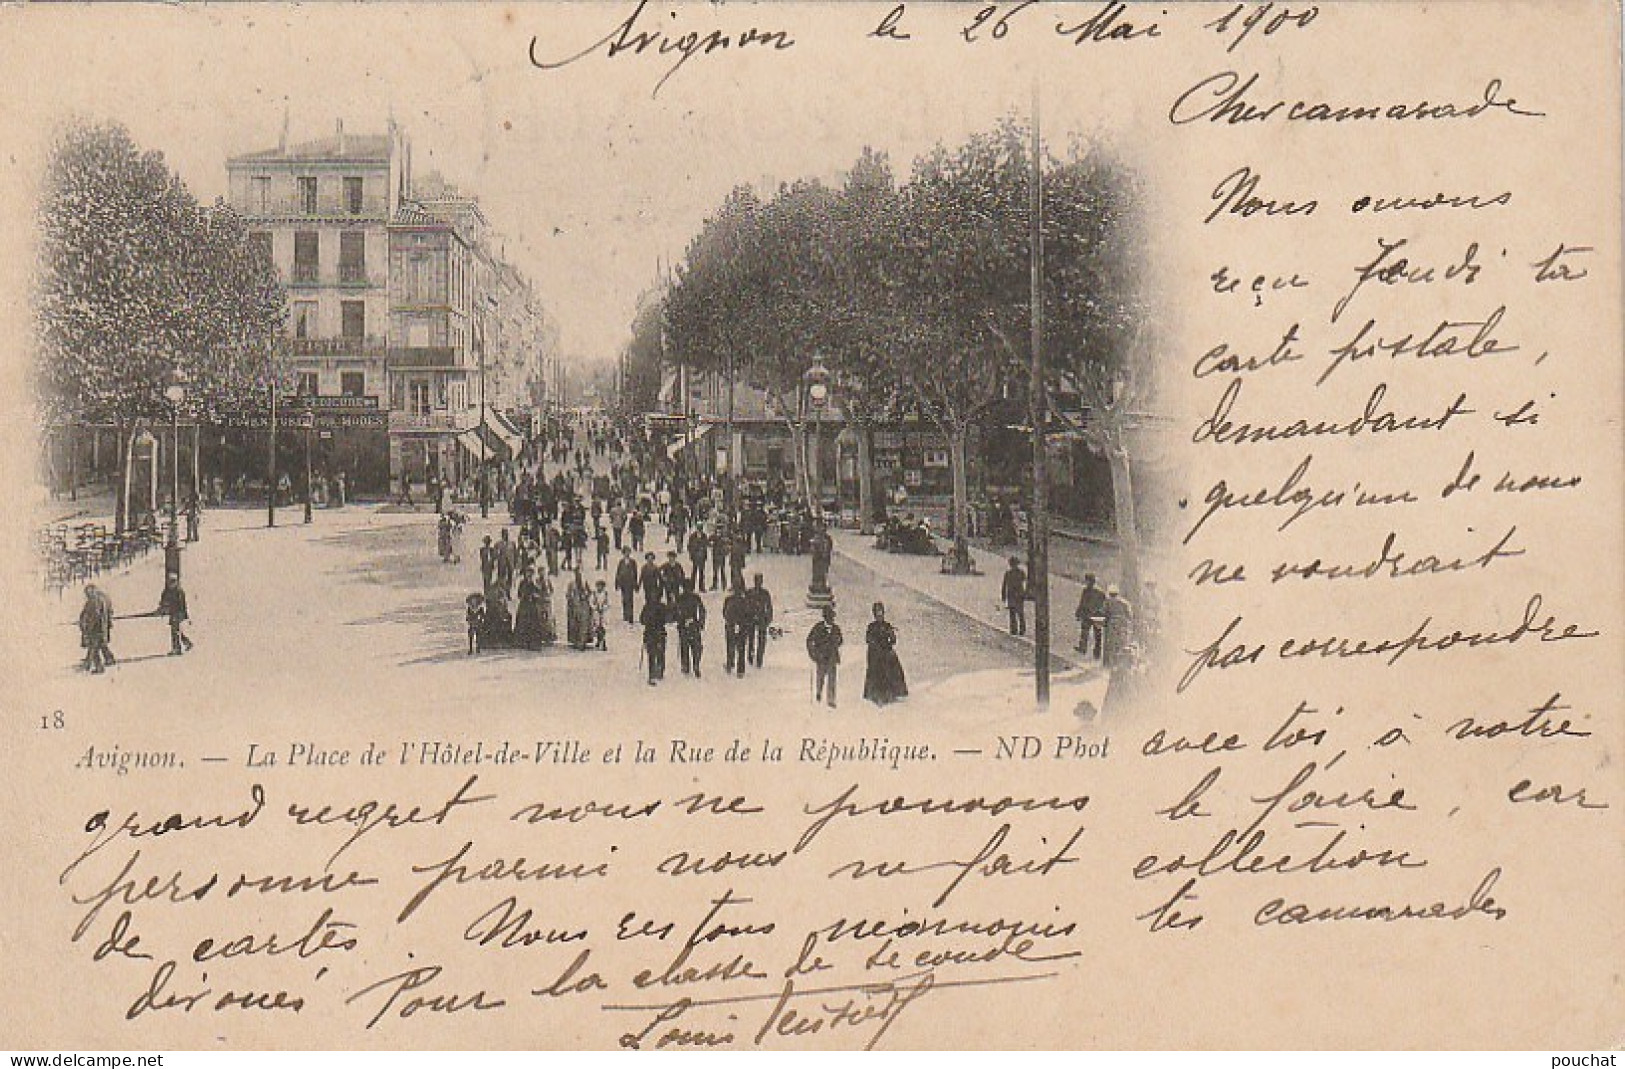 Avignon le 26 Mai 1900
Cher camarade
Nous avons
reçu Jeudi ta
carte postale,
demandant si
quelqu'un de nous
ne voudrait
pas correspondre
avec toi, à notre
grand regret nous ne pouvons le faire, car
personne parmi nous ne fait collection
de cartes. Nous restons néanmoins tes camarades
dévoués Pour la classe de seconde
Louis
18
Avignon. — La Place de l'Hôtel-de-Ville et la Rue de la République. — ND Phot
MODES
delcampe.net
pouchat